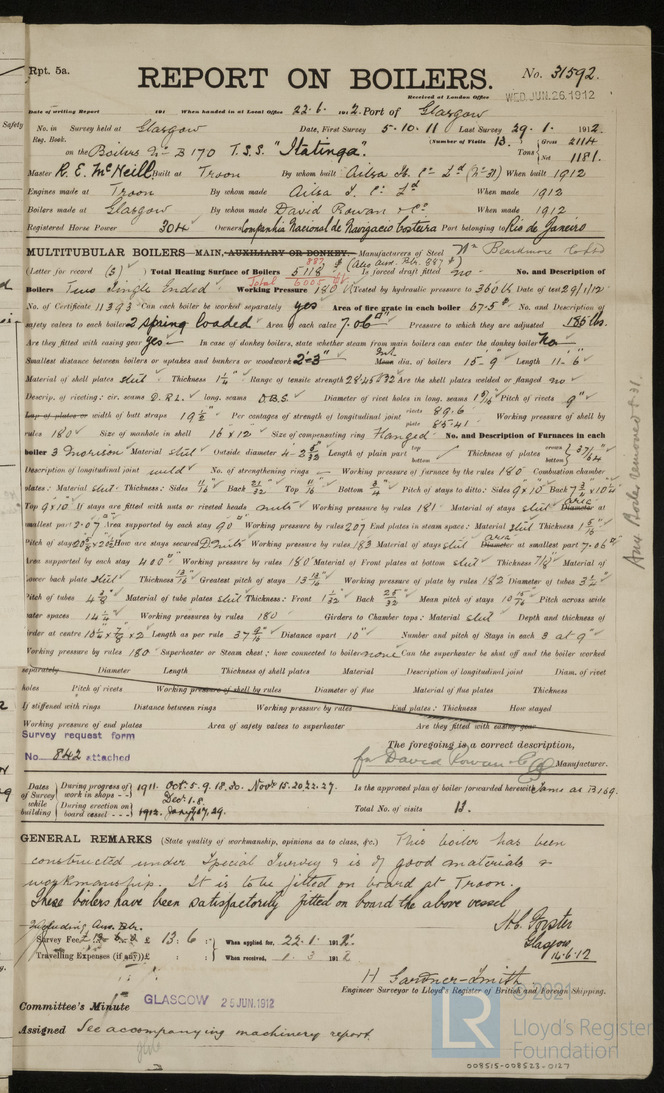 Rpt. 5a.
REPORT ON BOILERS.
No. 31592.
Received at London Office WED. JUN. 26. 1912
Date of writing Report 191 When handed in at Local Office 22.6. 1912 Port of Glasgow
No. in Survey held at Glasgow Date, First Survey 5.10.11 Last Survey 29.1. 1912.
Reg. Book. (Number of Visits 13.) Gross 2114
on the Boilers No B170 T.S.S. "Itatinga". Tons Net 1181.
Master R. E. McNeill Built at Troon By whom built Ailsa S. Co Ld (No 31) When built 1912
Engines made at Troon By whom made Ailsa S. Co Ld When made 1912
Boilers made at Glasgow By whom made David Rowan & Co. When made 1912
Registered Horse Power 304 Owners Companhia Nacional de Navigacio Costeira Port belonging to Rio de Janeiro
MULTITUBULAR BOILERS—MAIN, AUXILIARY OR DONKEY.—Manufacturers of Steel Wm Beardmore & Co Ld
887 (Also Aux. Blr. 887)
(Letter for record (S) ) Total Heating Surface of Boilers 5118 Is forced draft fitted no. No. and Description of
Total 6005
Boilers Two Single Ended Working Pressure 180 Tested by hydraulic pressure to 360 lb Date of test 29/1/12
No. of Certificate 11393 Can each boiler be worked separately yes Area of fire grate in each boiler 67.5 No. and Description of
safety valves to each boiler 2 spring loaded Area of each valve 7.06 Pressure to which they are adjusted 185 lbs.
Are they fitted with easing gear yes In case of donkey boilers, state whether steam from main boilers can enter the donkey boiler No
Smallest distance between boilers or uptakes and bunkers or woodwork 2'-3" Int. Mean dia. of boilers 15-9" Length 11-6"
Material of shell plates steel Thickness 1 1/4" Range of tensile strength 28.45 & 32 Are the shell plates welded or flanged no
Descrip. of riveting: cir. seams D.R.L. long. seams D.B.S. Diameter of rivet holes in long. seams 1 5/16 Pitch of rivets 9"
Lap of plates or width of butt straps 19 1/2" Per centages of strength of longitudinal joint rivets 89.6 plate 85.41 Working pressure of shell by
rules 180 Size of manhole in shell 16 x 12 Size of compensating ring Flanged No. and Description of Furnaces in each
boiler 3 Morison Material steel Outside diameter 4-2 Length of plain part top bottom Thickness of plates crown bottom 37/64
Description of longitudinal joint weld No. of strengthening rings Working pressure of furnace by the rules 180 Combustion chamber
plates: Material steel Thickness: Sides 11/16 Back 21/32 Top 11/16 Bottom 3/4 Pitch of stays to ditto: Sides 9 x 10 Back 7 3/4 x 10
Top 9 x 10 If stays are fitted with nuts or riveted heads nuts Working pressure by rules 181 Material of stays steel area Diameter at
smallest part 2.07 Area supported by each stay 90 Working pressure by rules 207 End plates in steam space: Material steel Thickness 1 5/16
Pitch of stays How are stays secured D. nuts Working pressure by rules 183 Material of stays steel area Diameter at smallest part 7.06
Area supported by each stay 400 Working pressure by rules 180 Material of Front plates at bottom steel Thickness Material of
Lower back plate steel Thickness 13/16 Greatest pitch of stays Working pressure of plate by rules 182 Diameter of tubes 3 1/2
Pitch of tubes 4 Material of tube plates steel Thickness: Front 1 1/32 Back 25/32 Mean pitch of stays Pitch across wide
water spaces 14 1/4 Working pressures by rules 180 Girders to Chamber tops: Material steel Depth and thickness of
girder at centre 10 x 7/8 x 2 Length as per rule 37 Distance apart 10" Number and pitch of Stays in each 3 at 9"
Working pressure by rules 180 Superheater or Steam chest; how connected to boiler none Can the superheater be shut off and the boiler worked
separately Diameter Length Thickness of shell plates Material Description of longitudinal joint Diam. of rivet
holes Pitch of rivets Working pressure of shell by rules Diameter of flue Material of flue plates Thickness
If stiffened with rings Distance between rings Working pressure by rules End plates: Thickness How stayed
Working pressure of end plates Area of safety valves to superheater Are they fitted with easing gear
Survey request form
No. 842 attached
The foregoing is a correct description,
for David Rowan & Co Manufacturer.
Dates of Survey while building
During progress of work in shops - - 1911. Oct. 5. 9. 18. 30. Nov. 15. 20. 22. 27.
Dec. 1. 8.
During erection on board vessel - - - 1912. Jan. 29.
Is the approved plan of boiler forwarded herewith Same as B169.
Total No. of visits 13.
GENERAL REMARKS (State quality of workmanship, opinions as to class, &c.) This boiler has been
constructed under Special Survey & is of good materials &
workmanship. It is to be fitted on board at Troon.
These boilers have been satisfactorily fitted on board the above vessel
including Aux. Blr.
Survey Fee £ 13 : 6 : When applied for, 22.1. 1912.
Travelling Expenses (if any) £ : : When received, 1.3 1912
Forster
Glasgow
14.6.12
H Gardner-Smith
Engineer Surveyor to Lloyd's Register of British and Foreign Shipping.
Committee's Minute GLASGOW 25 JUN. 1912
Assigned See accompanying machinery report.
Aux Boiler removed
Safety
© 2021
LR
Lloyd's Register
Foundation
008515-008523-0127